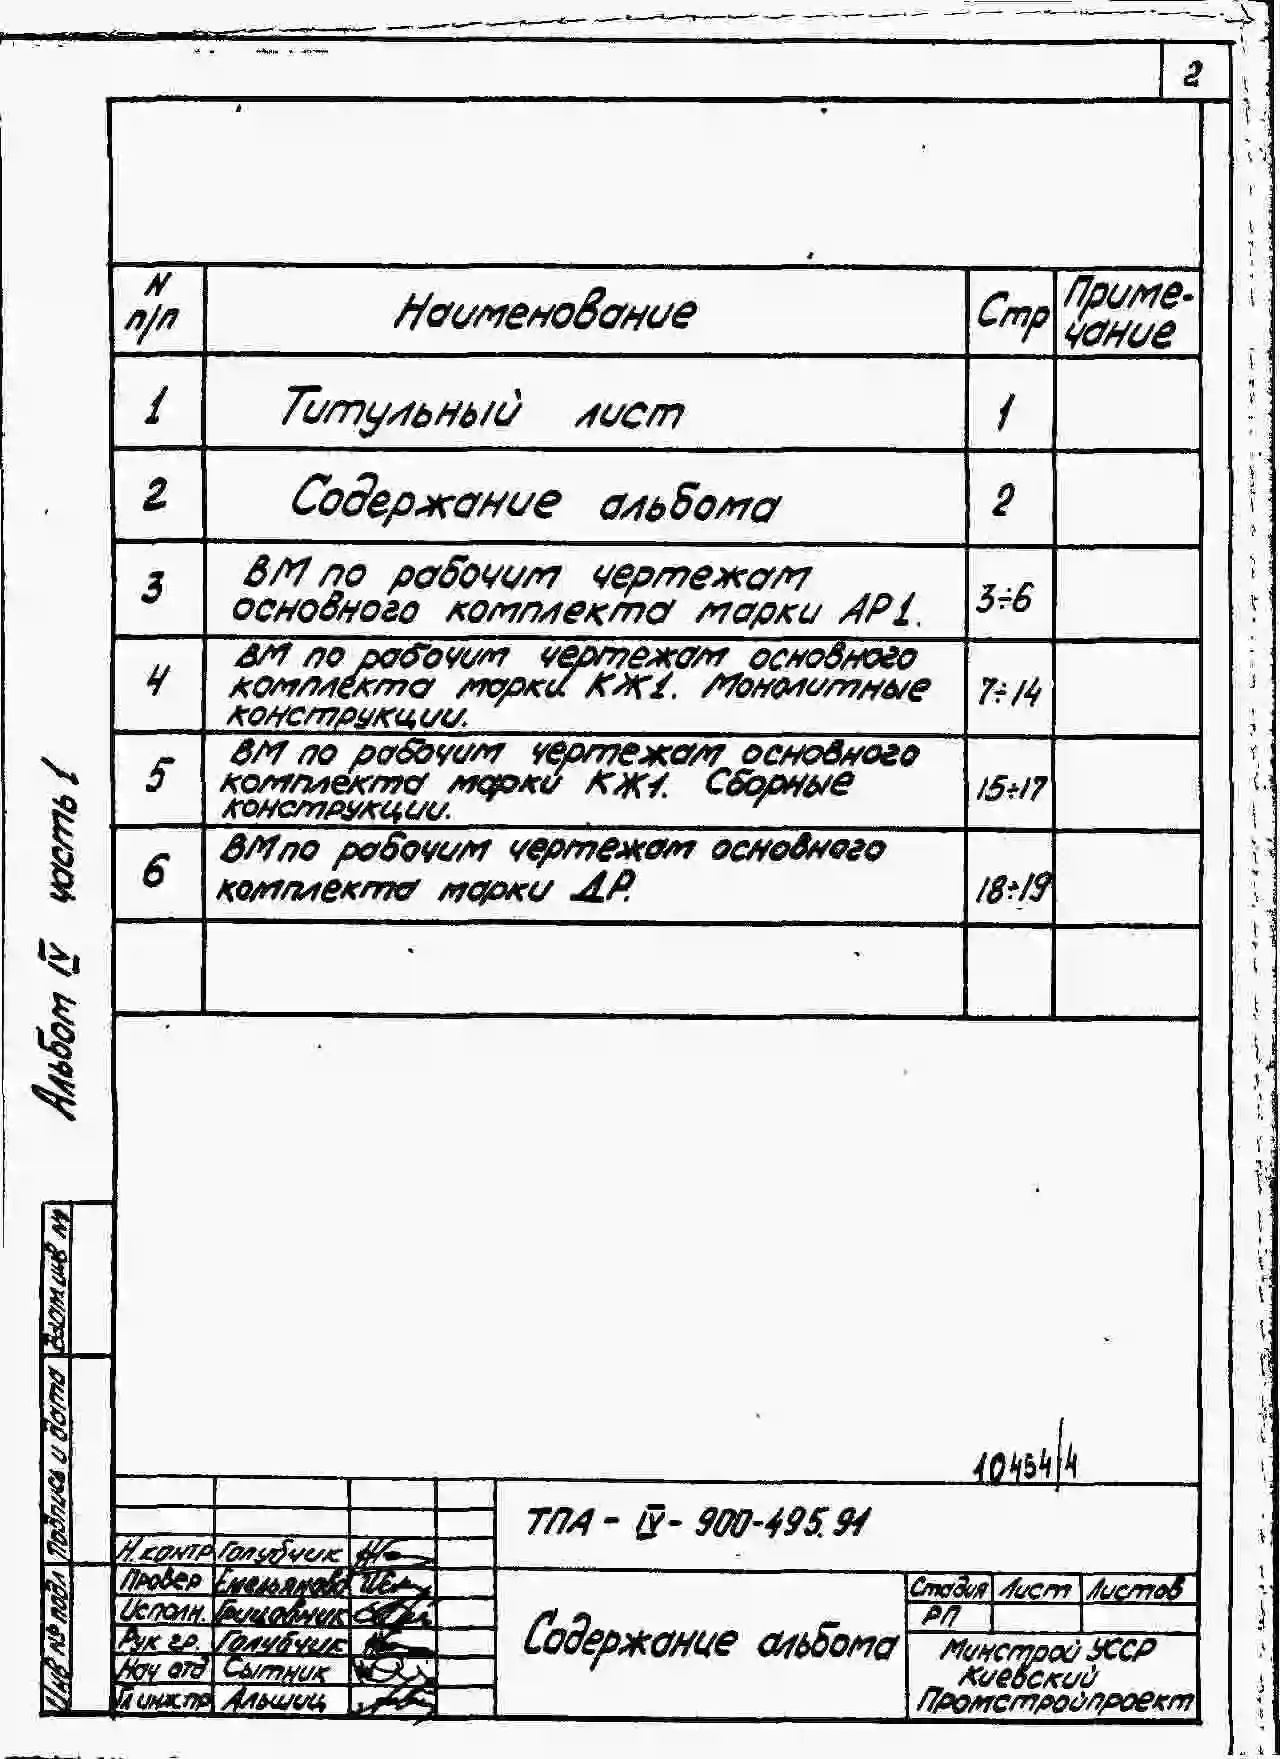 2
N п/п
Наименование
Стр
Приме-
чание
1
Титульный лист
1
2
Содержание альбома
2
3
ВМ по рабочим чертежам
основного комплекта марки АР1.
3÷6
4
ВМ по рабочим чертежам основного
комплекта марки КЖ1. Монолитные
конструкции.
7÷14
5
ВМ по рабочим чертежам основного
комплекта марки КЖ1. Сборные
конструкции.
15÷17
6
ВМ по рабочим чертежам основного
комплекта марки ДР.
18÷19
Альбом IV часть 1
Взам инв №
Подпись и дата
Инв № подл
10454/4
ТПА - IV - 900-495.91
Н.контр Голубчик
Провер Емельянова
Исполн. Грицовчик
Рук гр. Голубчик
Нач отд Сытник
Гл инж.пр Альшиц
Содержание альбома
Стадия Лист Листов
РП
Минстрой УССР
Киевский
Промстройпроект